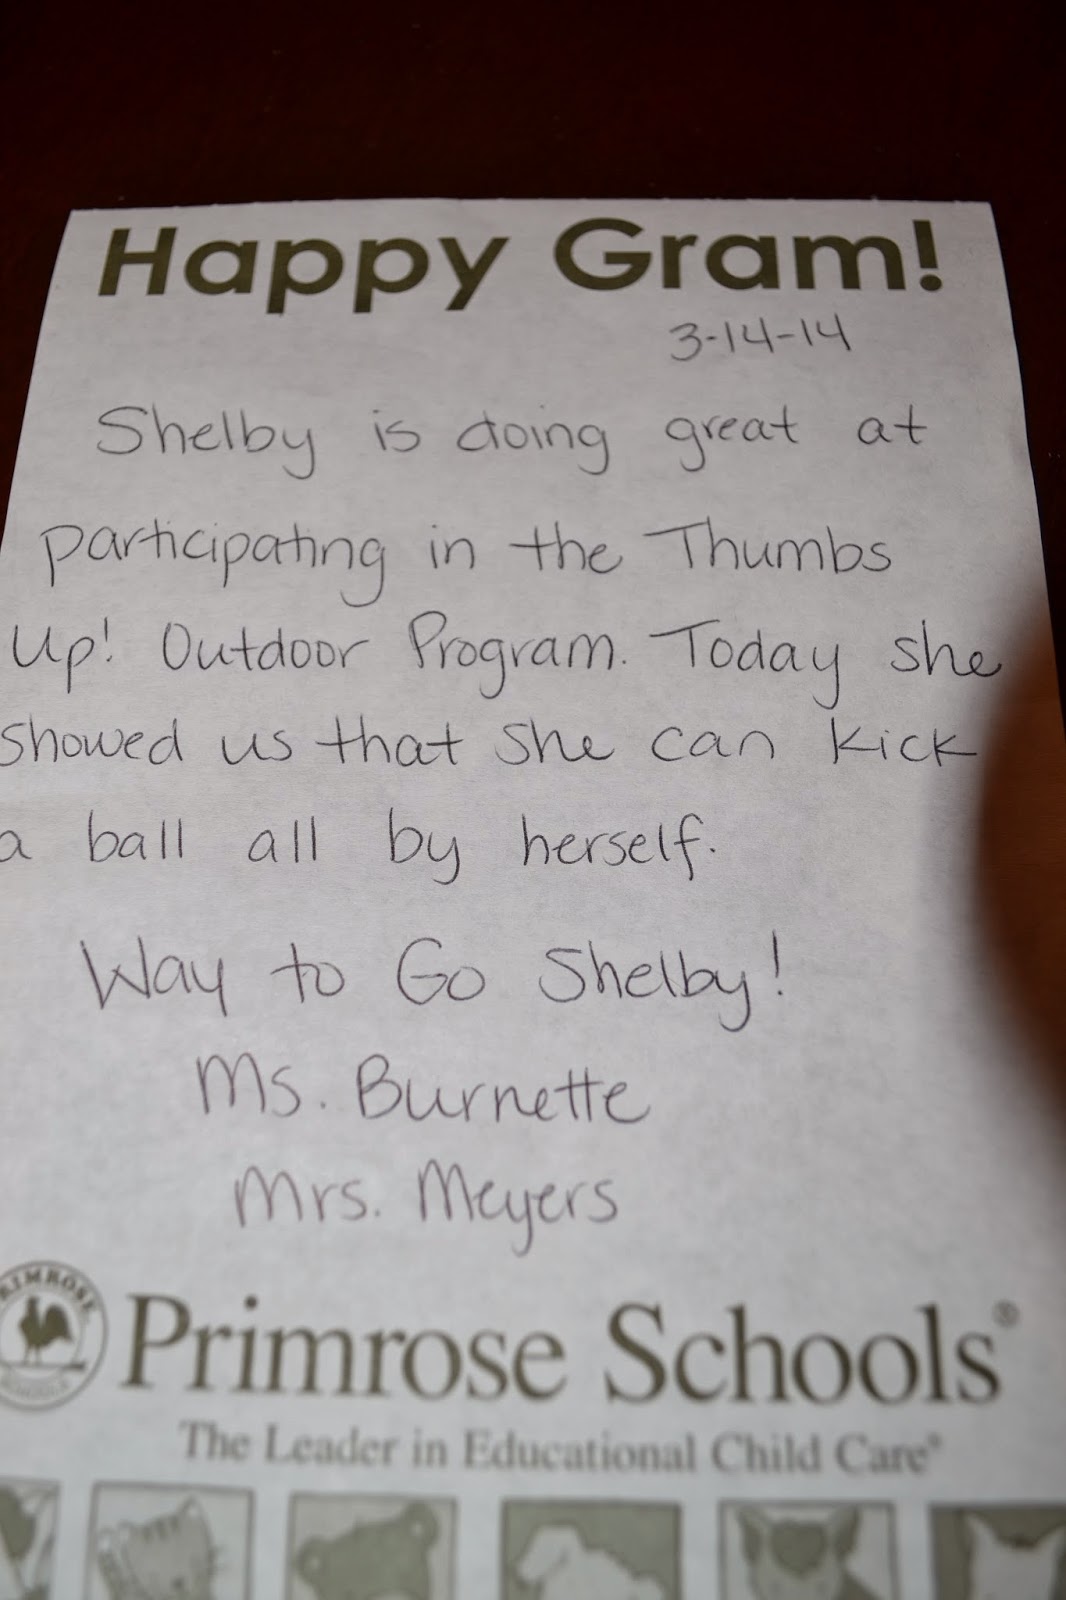 Happy Gram!
3-14-14
Shelby is doing great at
participating in the Thumbs
Up! Outdoor Program. Today she
showed us that she can kick
a ball all by herself.
Way to Go Shelby!
Ms. Burnette
Mrs. Meyers
PRIMROSE
Primrose Schools®
The Leader in Educational Child Care®